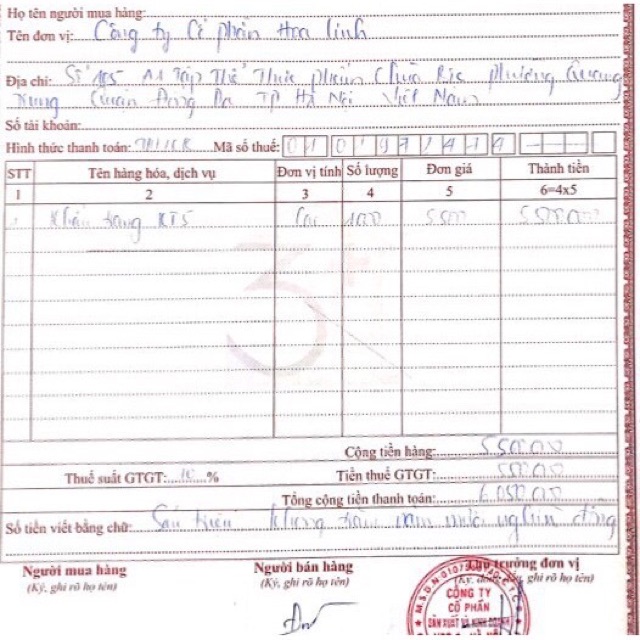 Họ tên người mua hàng:
Tên đơn vị: Công ty Cổ phần Hoa Linh
Địa chỉ: Số 105 A1 Tập Thể Thực phẩm Chùa Bộc, phường Quang
Trung Quận Đống Đa TP Hà Nội Việt Nam
Số tài khoản:
Hình thức thanh toán: TM/CK Mã số thuế:
STT Tên hàng hóa, dịch vụ Đơn vị tính Số lượng Đơn giá Thành tiền
1 2 3 4 5 6=4x5
Khẩu trang KT5 Cái 1000 5500 5500000
Cộng tiền hàng: 5500000
Thuế suất GTGT: 10 % Tiền thuế GTGT: 550000
Tổng cộng tiền thanh toán: 6050000
Số tiền viết bằng chữ: Sáu triệu không trăm năm mươi nghìn đồng
Người mua hàng Người bán hàng Thủ trưởng đơn vị
(Ký, ghi rõ họ tên) (Ký, ghi rõ họ tên) (Ký, ghi rõ họ tên)
CÔNG TY
CỔ PHẦN
SẢN XUẤT VÀ KINH DOANH